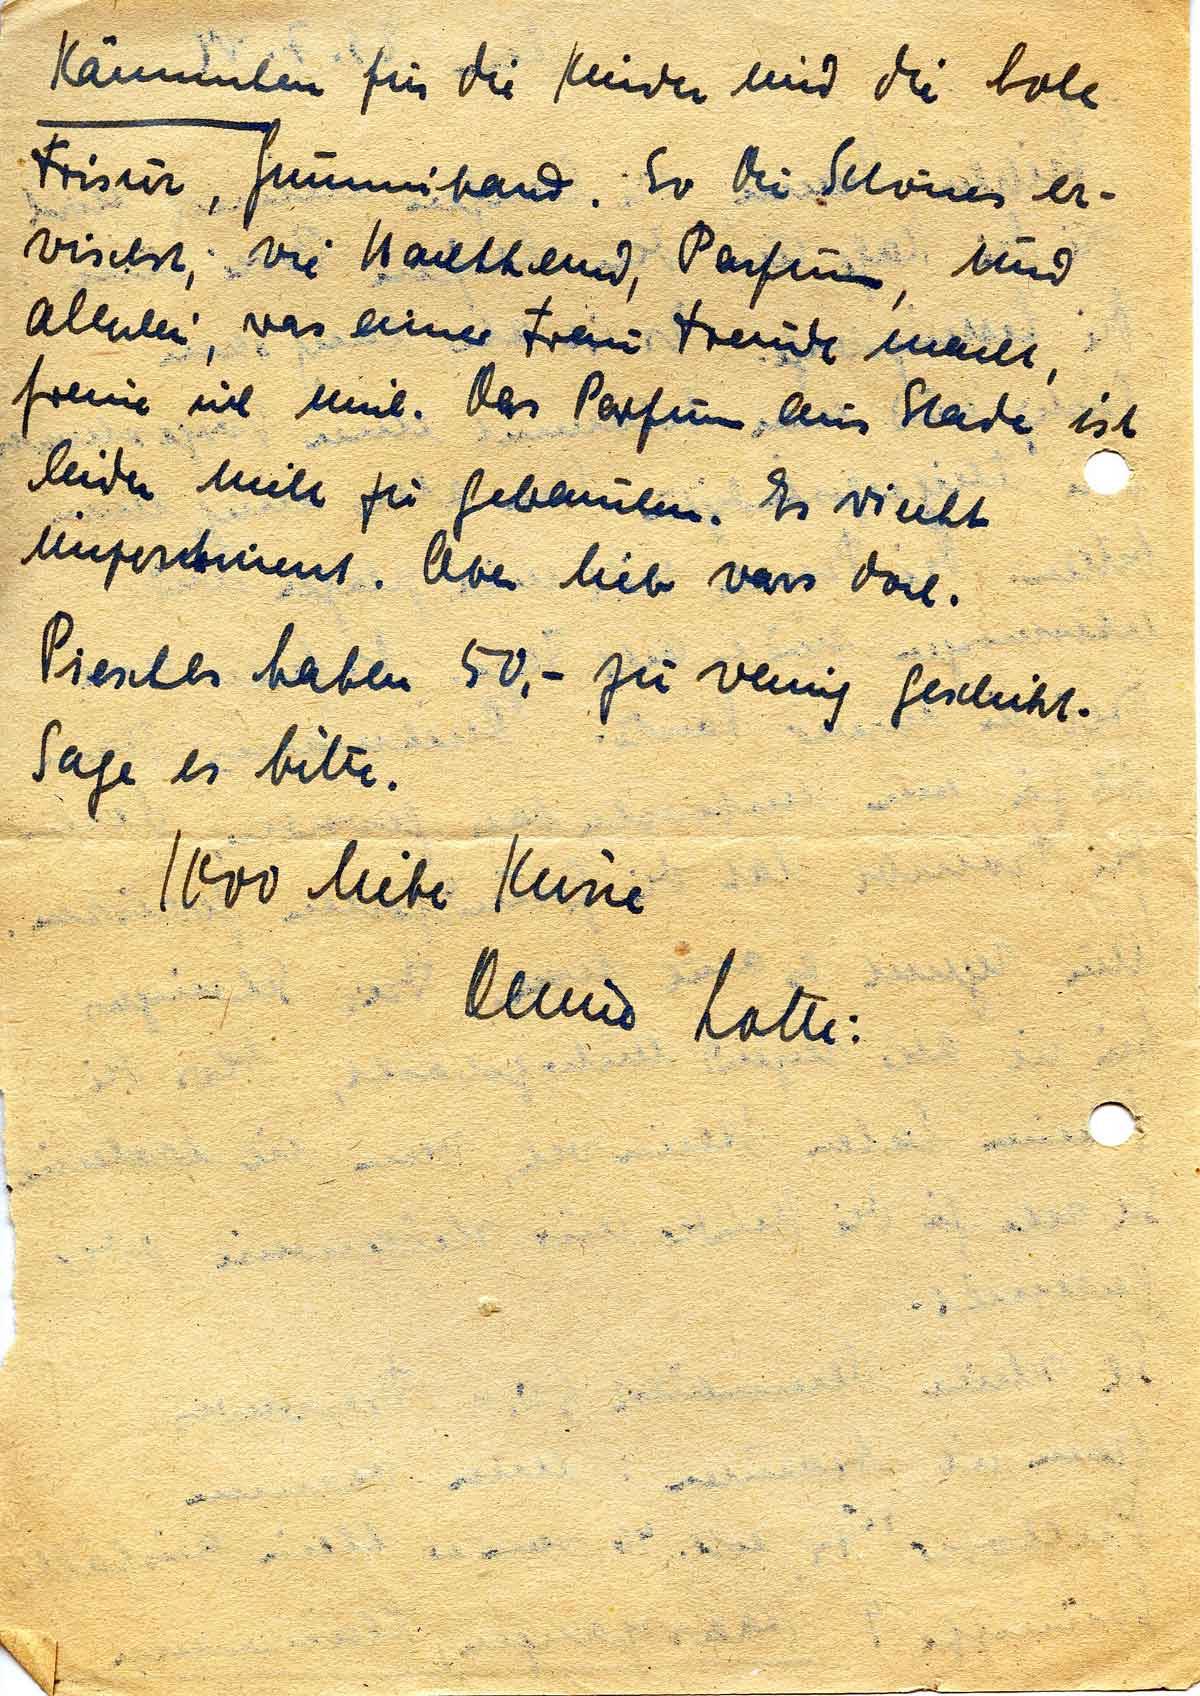 Kämmchen für die Kinder und die hohe
Frisur, Gummiband. So Du Schönes er-
wischst, wie Nachthemd, Parfum, und
allerlei, was einer Frau Freude macht,
freue ich mich. Das Parfum aus Stade ist
leider nicht zu gebrauchen. Es riecht
impertinent. Aber lieb wars doch.
Pieschls haben 50,- zu wenig geschickt.
Sage es bitte.
1000 liebe Küsse
Deine Lotte.